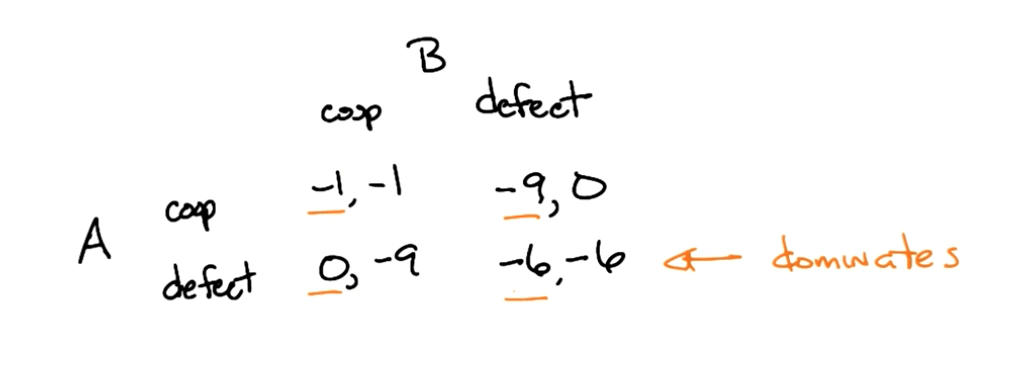 B
coop defect
coop -1, -1 -9, 0
A
defect 0, -9 -6, -6 ← dominates